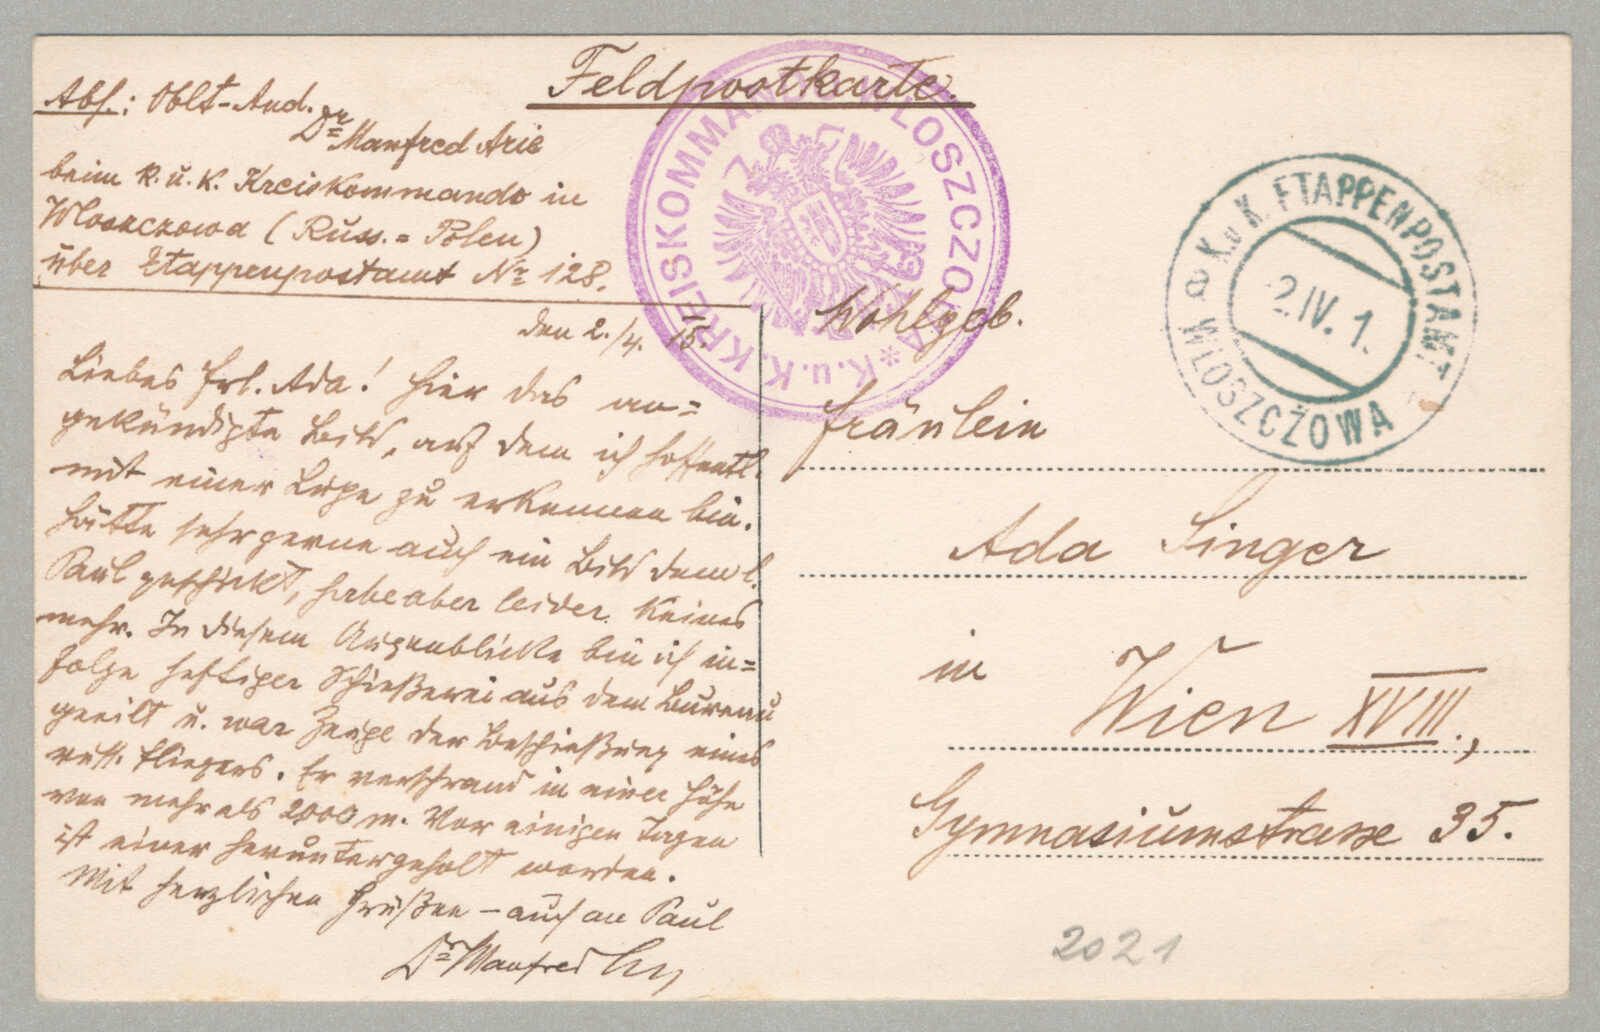 Feldpostkarte.
Abs.: Oblt-Aud.
Dr Manfred Arie
beim k. u. k. Kreiskommando in
Wloszczowa (Russ.=Polen)
über Etappenpostamt No 128.
den 2./4. 15.
Liebes Frl. Ada! Hier das an=
gekündigte Bild, auf dem ich hoffentl.
mit einer Lupe zu erkennen bin.
Hätte sehr gerne auch ein Bild dem l.
Paul geschickt, habe aber leider keines
mehr. In diesem Augenblicke bin ich in=
folge heftiger Schießerei aus dem Bureau
geeilt u. war Zeuge der Beschießung eines
russ. Fliegers. Er verschwand in einer Höhe
von mehr als 2000 m. Vor einigen Tagen
ist einer heruntergeholt worden.
Mit herzlichen Grüßen – auch an Paul
Dr Manfred
K.u.K. KREISKOMMANDO WLOSZCZOWA *
K.u.K. ETAPPENPOSTAMT
2.IV.1
WLOSZCZOWA
a
Wohlgeb.
Fräulein
Ada Singer
in Wien XVIII.,
Gymnasiumstrasse 35.
2021